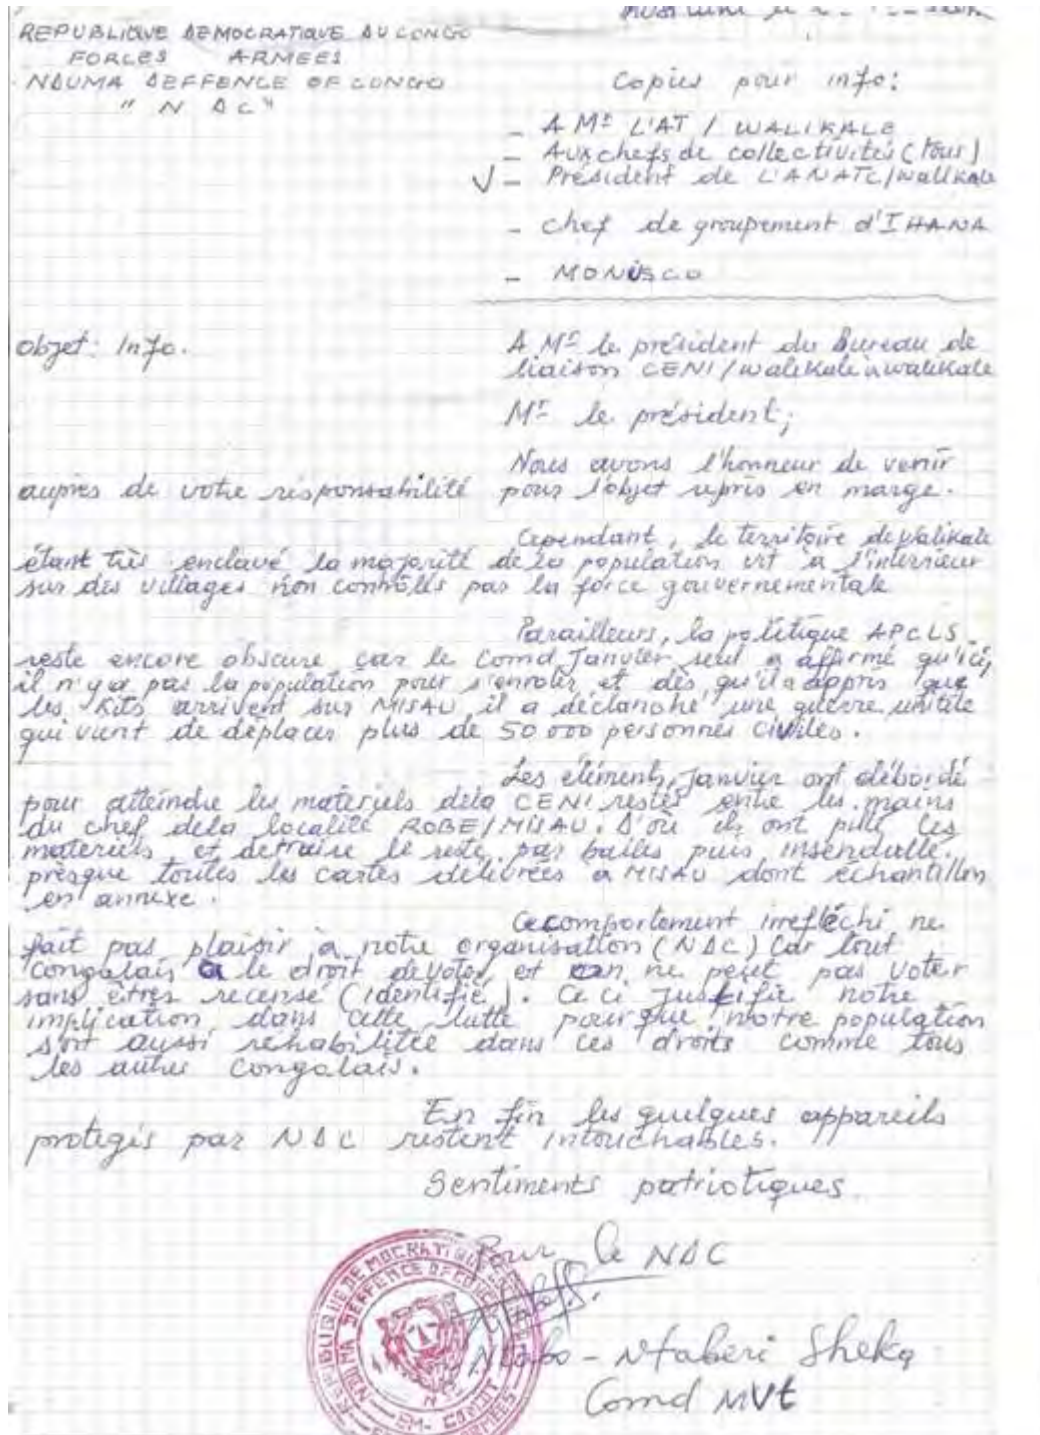 REPUBLIQUE DEMOCRATIQUE DU CONGO
FORCES ARMEES
NDUMA DEFFENCE OF CONGO
" N D C "
Copies pour info:
- A Mr L'AT / WALIKALE
- Aux chefs de collectivités (tous)
√ - Président de L'ANATC/Walikale
- chef de groupement d'IHANA
- MONUSCO
Objet: Info.
A Mr le président du Bureau de
liaison CENI/Walikale à Walikale
Mr le président;
Nous avons l'honneur de venir
auprès de votre résponsabilité pour l'objet repris en marge.
Cependant, le territoire de Walikale
étant très enclavé la majorité de la population vit à l'interrieur
sur des villages non contrôlés par la force gouvernementale
Parailleurs, la politique APCLS
reste encore obscure car le Comd Janvier seul a affirmé qu'ici,
il n'ya pas la population pour s'enroler et dès qu'il a appris que
les Kits arrivent sur MISAU il a déclanché une guerre
qui vient de déplacer plus de 50 000 personnes civiles.
Les éléments Janvier ont débordé
pour atteindre les materiels dela CENI restés entre les mains
du chef dela localité ROBE/MISAU. D'où ils ont pillé ces
materiels et détruire le reste par balles puis
presque toutes les cartes délivrées à MISAU dont échantillon
en annexe.
Cecomportement irrefléchi ne
fait pas plaisir à notre organisation (NDC) Car tout
Congolais a le droit de voter et on ne peut pas voter
sans êtres recensé (identifié). Ce ci justifie notre
implication dans cette lutte pour que notre population
soit aussi réhabilitée dans ces droits comme tous
les autres Congolais.
En fin les quelques appareils
protegés par NDC restent intouchables.
Sentiments patriotiques.
Pour le NDC
Ntabo - Ntaberi Sheka
Comd MVt
REPUBLIQUE DEMOCRATIQUE
NDUMA DEFFENCE OF CONGO